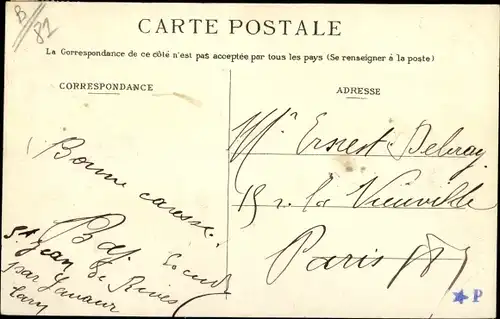 B
82
CARTE POSTALE
La Correspondance de ce côté n'est pas acceptée par tous les pays (Se renseigner à la poste)
CORRESPONDANCE
Bonne caresse.
St Jean de Rives
par Lavaur
Tarn
ADRESSE
Mr Ernest Debray
15 r. La Vieuville
Paris
P